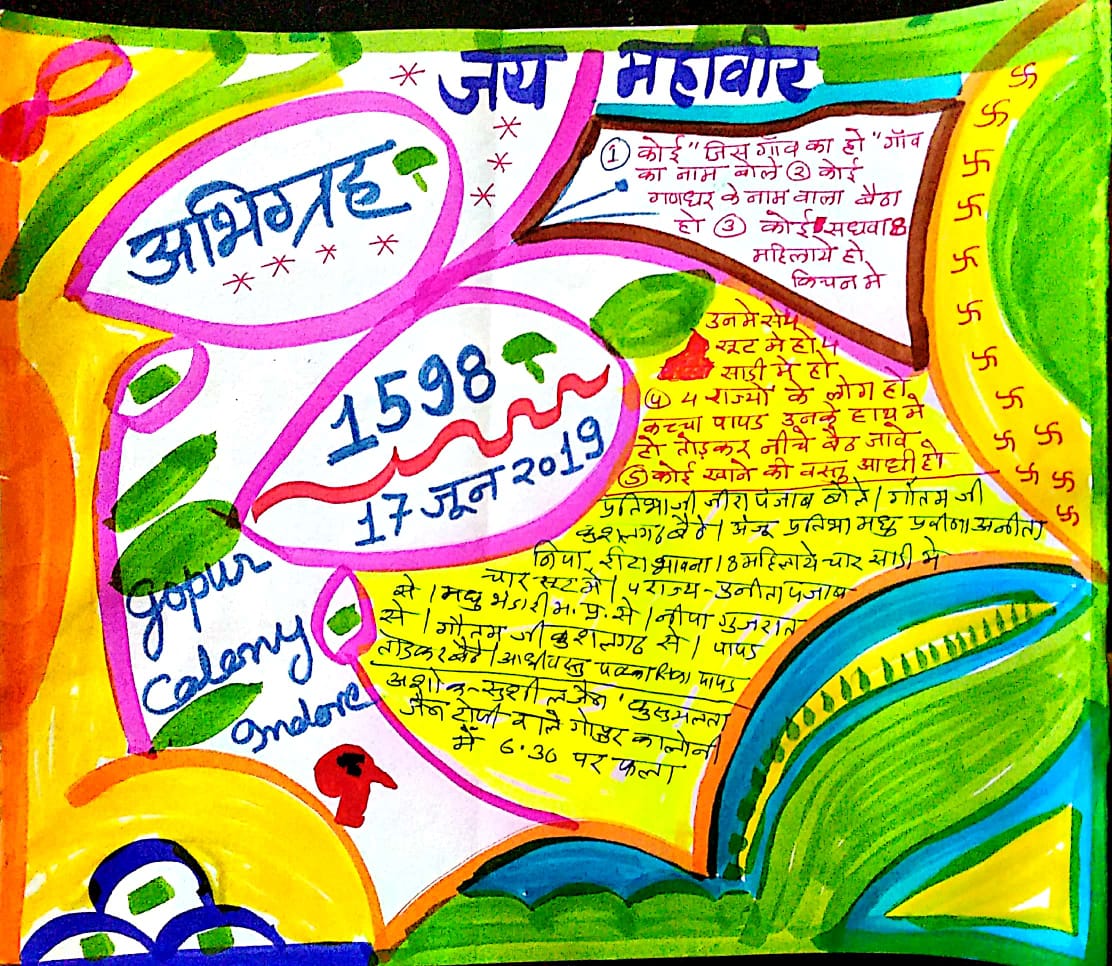 जय महावीर
अभिग्रह
① कोई "जिस गाँव का हो "गाँव
का नाम बोले ② कोई
गणधर के नाम वाला बैठा
हो ③ कोई सधवा 8
महिलाये हो
किचन मे
उनमे से ४
सूट मे हो ४
साडी मे हो
④ 4 राज्यों के लोग हो
कच्चा पापड उनके हाथ मे
हो तोड़कर नीचे बैठ जावे
⑤ कोई खाने की वस्तु आधी हो
1598
17 जून 2019
gopur
Colony
Indore
प्रतिभाजी जीरा पंजाब बोले। गौतम जी
कुशलगढ बैठे। अंजू प्रतिभा मधु प्रवीणा अनीता
निपा रीटा भावना। 8 महिलाये चार साडी मे
चार सूट मे। ४ राज्य- पंजाब
से। मधु भंडारी म. प्र. से। नीपा गुजरात
से। गौतम जी कुशलगढ से। पापड
तोडकर बैठे। आधी वस्तु पापड
अशोक-सुशील जैन 'कुसुमलता
जैन टोपी वाले गोपुर कालोनी
में 6.30 पर फला